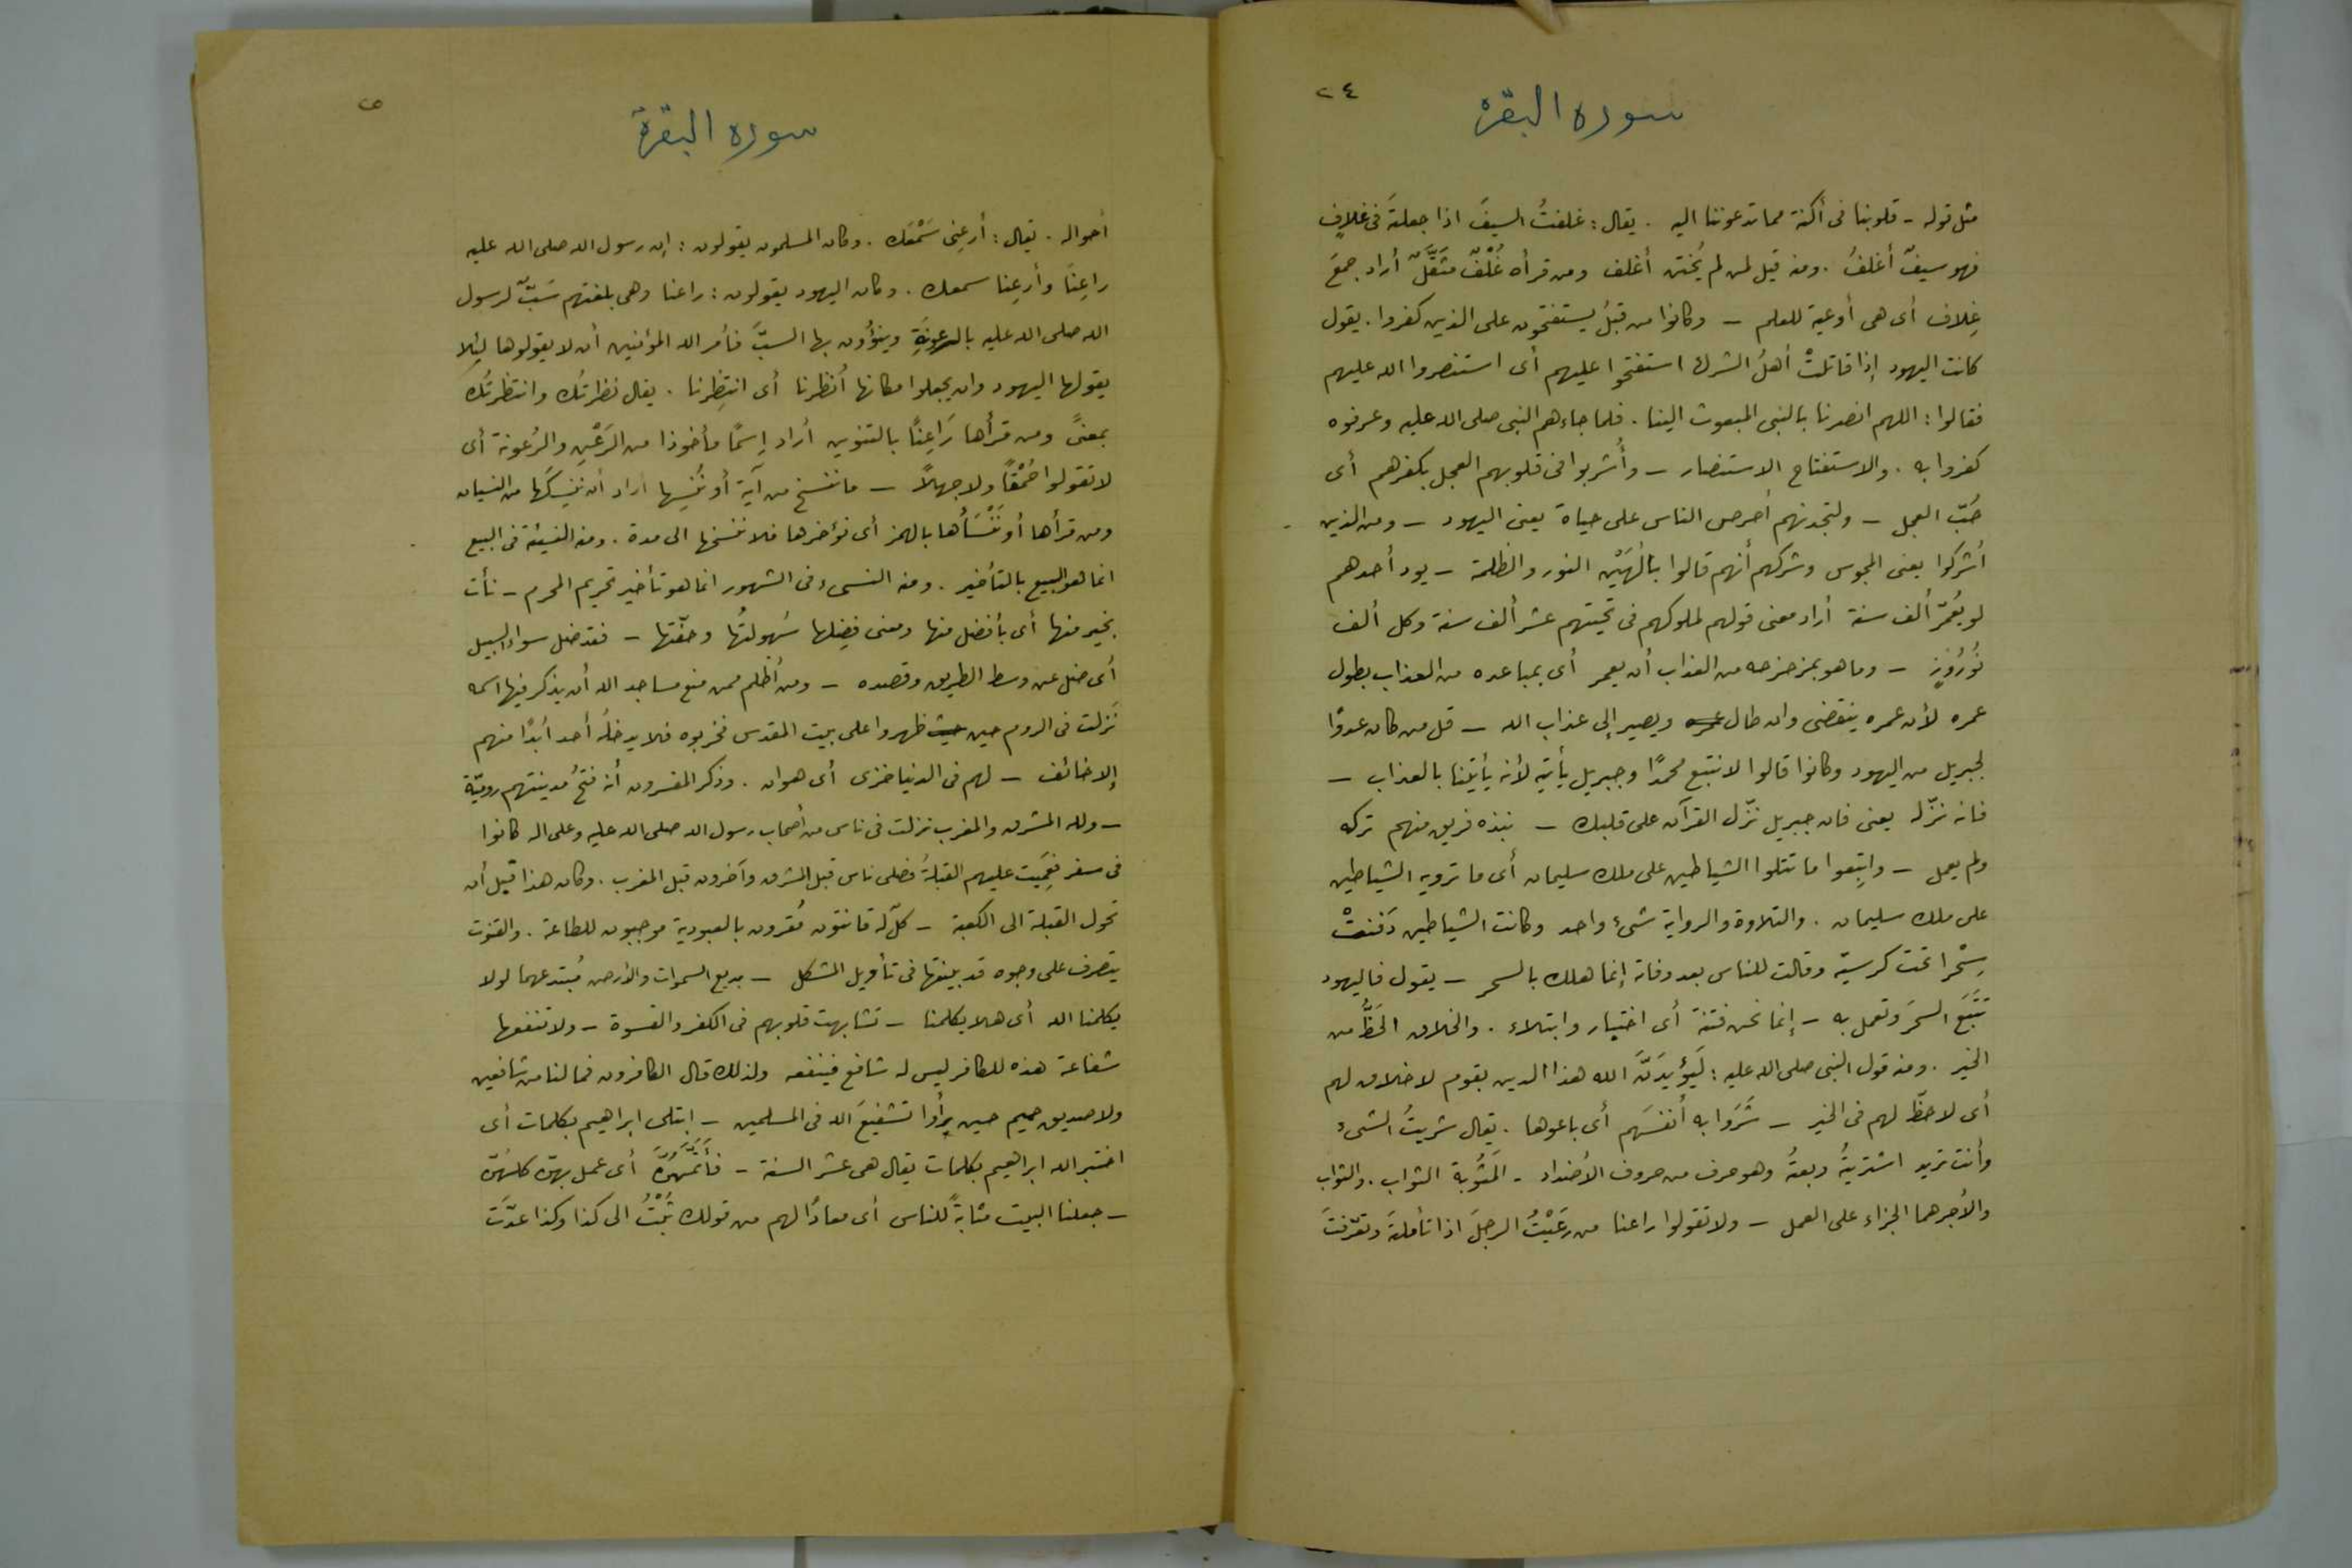 ٢٤
سورة البقرة
مثل قوله - قلوبنا فى أكنة مما تدعوننا اليه . يقال : غلفتُ السيفَ اذا جعلتَه فى غلافٍ
فهو سيفٌ أغلفُ . ومنه قيل لمن لم يُختن أغلف ومن قرأه غُلُفٌ مثقَّلٌ أراد جمعَ
غِلاف أى هى أوعية للعلم - وكانوا من قبلُ يستفتحون على الذين كفروا . يقول
كانت اليهود إذا قاتلتْ أهلَ الشرك استفتحوا عليهم أى استنصروا الله عليهم
فقالوا : اللهم انصرنا بالنبى المبعوث الينا . فلما جاءهم النبى صلى الله عليه وعرفوه
كفروا به . والاستفتاح الاستنصار - وأُشربوا فى قلوبهم العجل بكفرهم أى
حُبّ العجل - ولتجدنهم أحرص الناس على حياة يعنى اليهود - ومن الذين
أشركوا يعنى المجوس وشركهم أنهم قالوا بالٰهَيْن النور والظلمة - يود أحدهم
لو يُعمّر ألف سنة أراد معنى قولهم لملوكهم فى تحيتهم عشر ألف سنة وكل ألف
نُورُوزٍ - وما هو بمزحزحه من العذاب أن يعمر أى بمباعده من العذاب بطول
عمره لأن عمره ينقضى وان طال عمره ويصير إلى عذاب الله - قل من كان عدوًّا
لجبريل من اليهود وكانوا قالوا لا نتبع محمدًا وجبريل يأتيه لأنه يأتينا بالعذاب -
فانه نزّله يعنى فان جبريل نزّل القرآن على قلبك - نبذه فريق منهم تركه
ولم يعمل - واتبعوا ما تتلوا الشياطين على ملك سليمان أى ما ترويه الشياطين
على ملك سليمان . والتلاوة والرواية شىء واحد وكانت الشياطين دَفنتْ
سِحْرا تحت كرسيّه وقالت للناس بعد وفاته إنما هلك بالسحر - يقول فاليهود
تَتَبَع السحرَ وتعمل به - إنما نحن فتنة أى اختبار وابتلاء . والخلاق الحَظُّ من
الخير . ومنه قول النبى صلى الله عليه : لَيُؤيدَنَّ الله هذا الدين بقوم لا خلاق لهم
أى لا حظّ لهم فى الخير - شَرَوا به أنفسَهم أى باعوها . يقال شريتُ الشىء
وأنت تريد اشتريتُه وبعتُه وهو حرف من حروف الأضداد - المَثُوبة الثواب . والثواب
والأجر هما الجزاء على العمل - ولا تقولوا راعنا من رَعَيْتُ الرجلَ اذا تأملتَه وتعرّفتَ
سورة البقرة
أحواله . يقال : أرعِنِى سَمْعَك . وكان المسلمون يقولون : إن رسول الله صلى الله عليه
راعِنًا وأرعِنا سمعك . وكان اليهود يقولون : راعنا وهى بلغتهم سَبٌّ لرسول
الله صلى الله عليه بالرعونةِ وينوُون بها السبَّ فأمر الله المؤمنين أن لا يقولوها لِئلا
يقولها اليهود وان يجعلوا مكانها أُنظرنا أى انتظِرنا . يقال نظرتُك وانتظرتُك
بمعنًى ومن قرأها رَاعِنًا بالتنوين أراد إسمًا مأخوذا من الرَعْنِ والرُعونة أى
لا تقولوا حُمْقًا ولا جهلاً - ما ننسخ من آية أو نُنسِها اراد أن نُنسِكَها من النسيان
ومن قرأها أو نَنْسَأْها بالهمز أى نؤخرها فلا ننسخها الى مدة . ومنه النسيئة فى البيع
انما هو البيع بالتأخير . ومنه النسىء فى الشهور انما هو تأخير تحريم المحرم - نأت
بخير منها أى بأفضل منها ومعنى فضلِها سُهولتُها وخفّتها - فقد ضل سواء السبيل
أى ضل عن وسط الطريق وقصده - ومن أظلم ممن منع مساجد الله أن يذكر فيها اسمه
نَزلت فى الروم حين ظهروا على بيت المقدس فخربوه فلا يدخلُه أحد أبدًا منهم
إلا خائف - لهم فى الدنيا خزى أى هوان . وذكر المفسرون أنه فتحُ مدينتهم روميّة
- ولله المشرق والمغرب نزلت فى ناس من أصحاب رسول الله صلى الله عليه وعلى اله كانوا
فى سفر فعَمِيَت عليهم القبلةُ فصلى ناس قبل المشرق وآخرون قبل المغرب . وكان هذا قبل أن
تحول القبلة الى الكعبة - كلّ له قانتون مُقرون بالعبودية موجبون للطاعة . والقنوت
يتصرف على وجوه قد بينتها فى تأويل المشكل - بديع السموات والأرض مُبتدعهما لولا
يكلمنا الله أى هلا يكلمنا - تشابهت قلوبهم فى الكفر والقسوة - ولا تنفعها
شفاعة هذه للكافر ليس له شافع فينفعه ولذلك قال الكافرون فما لنا من شافعين
ولا صديق حميم حين رأوا تشفيعَ الله فى المسلمين - ابتلى ابراهيم بكلمات أى
اختبر الله ابراهيم بكلمات يقال هى عشر السنة - فأَتَمَّهُنَّ أى عمل بهنّ كلِّهنّ
- جعلنا البيت مثابةً للناس أى معادًا لهم من قولك ثُبْتُ الى كذا وكذا عدّت